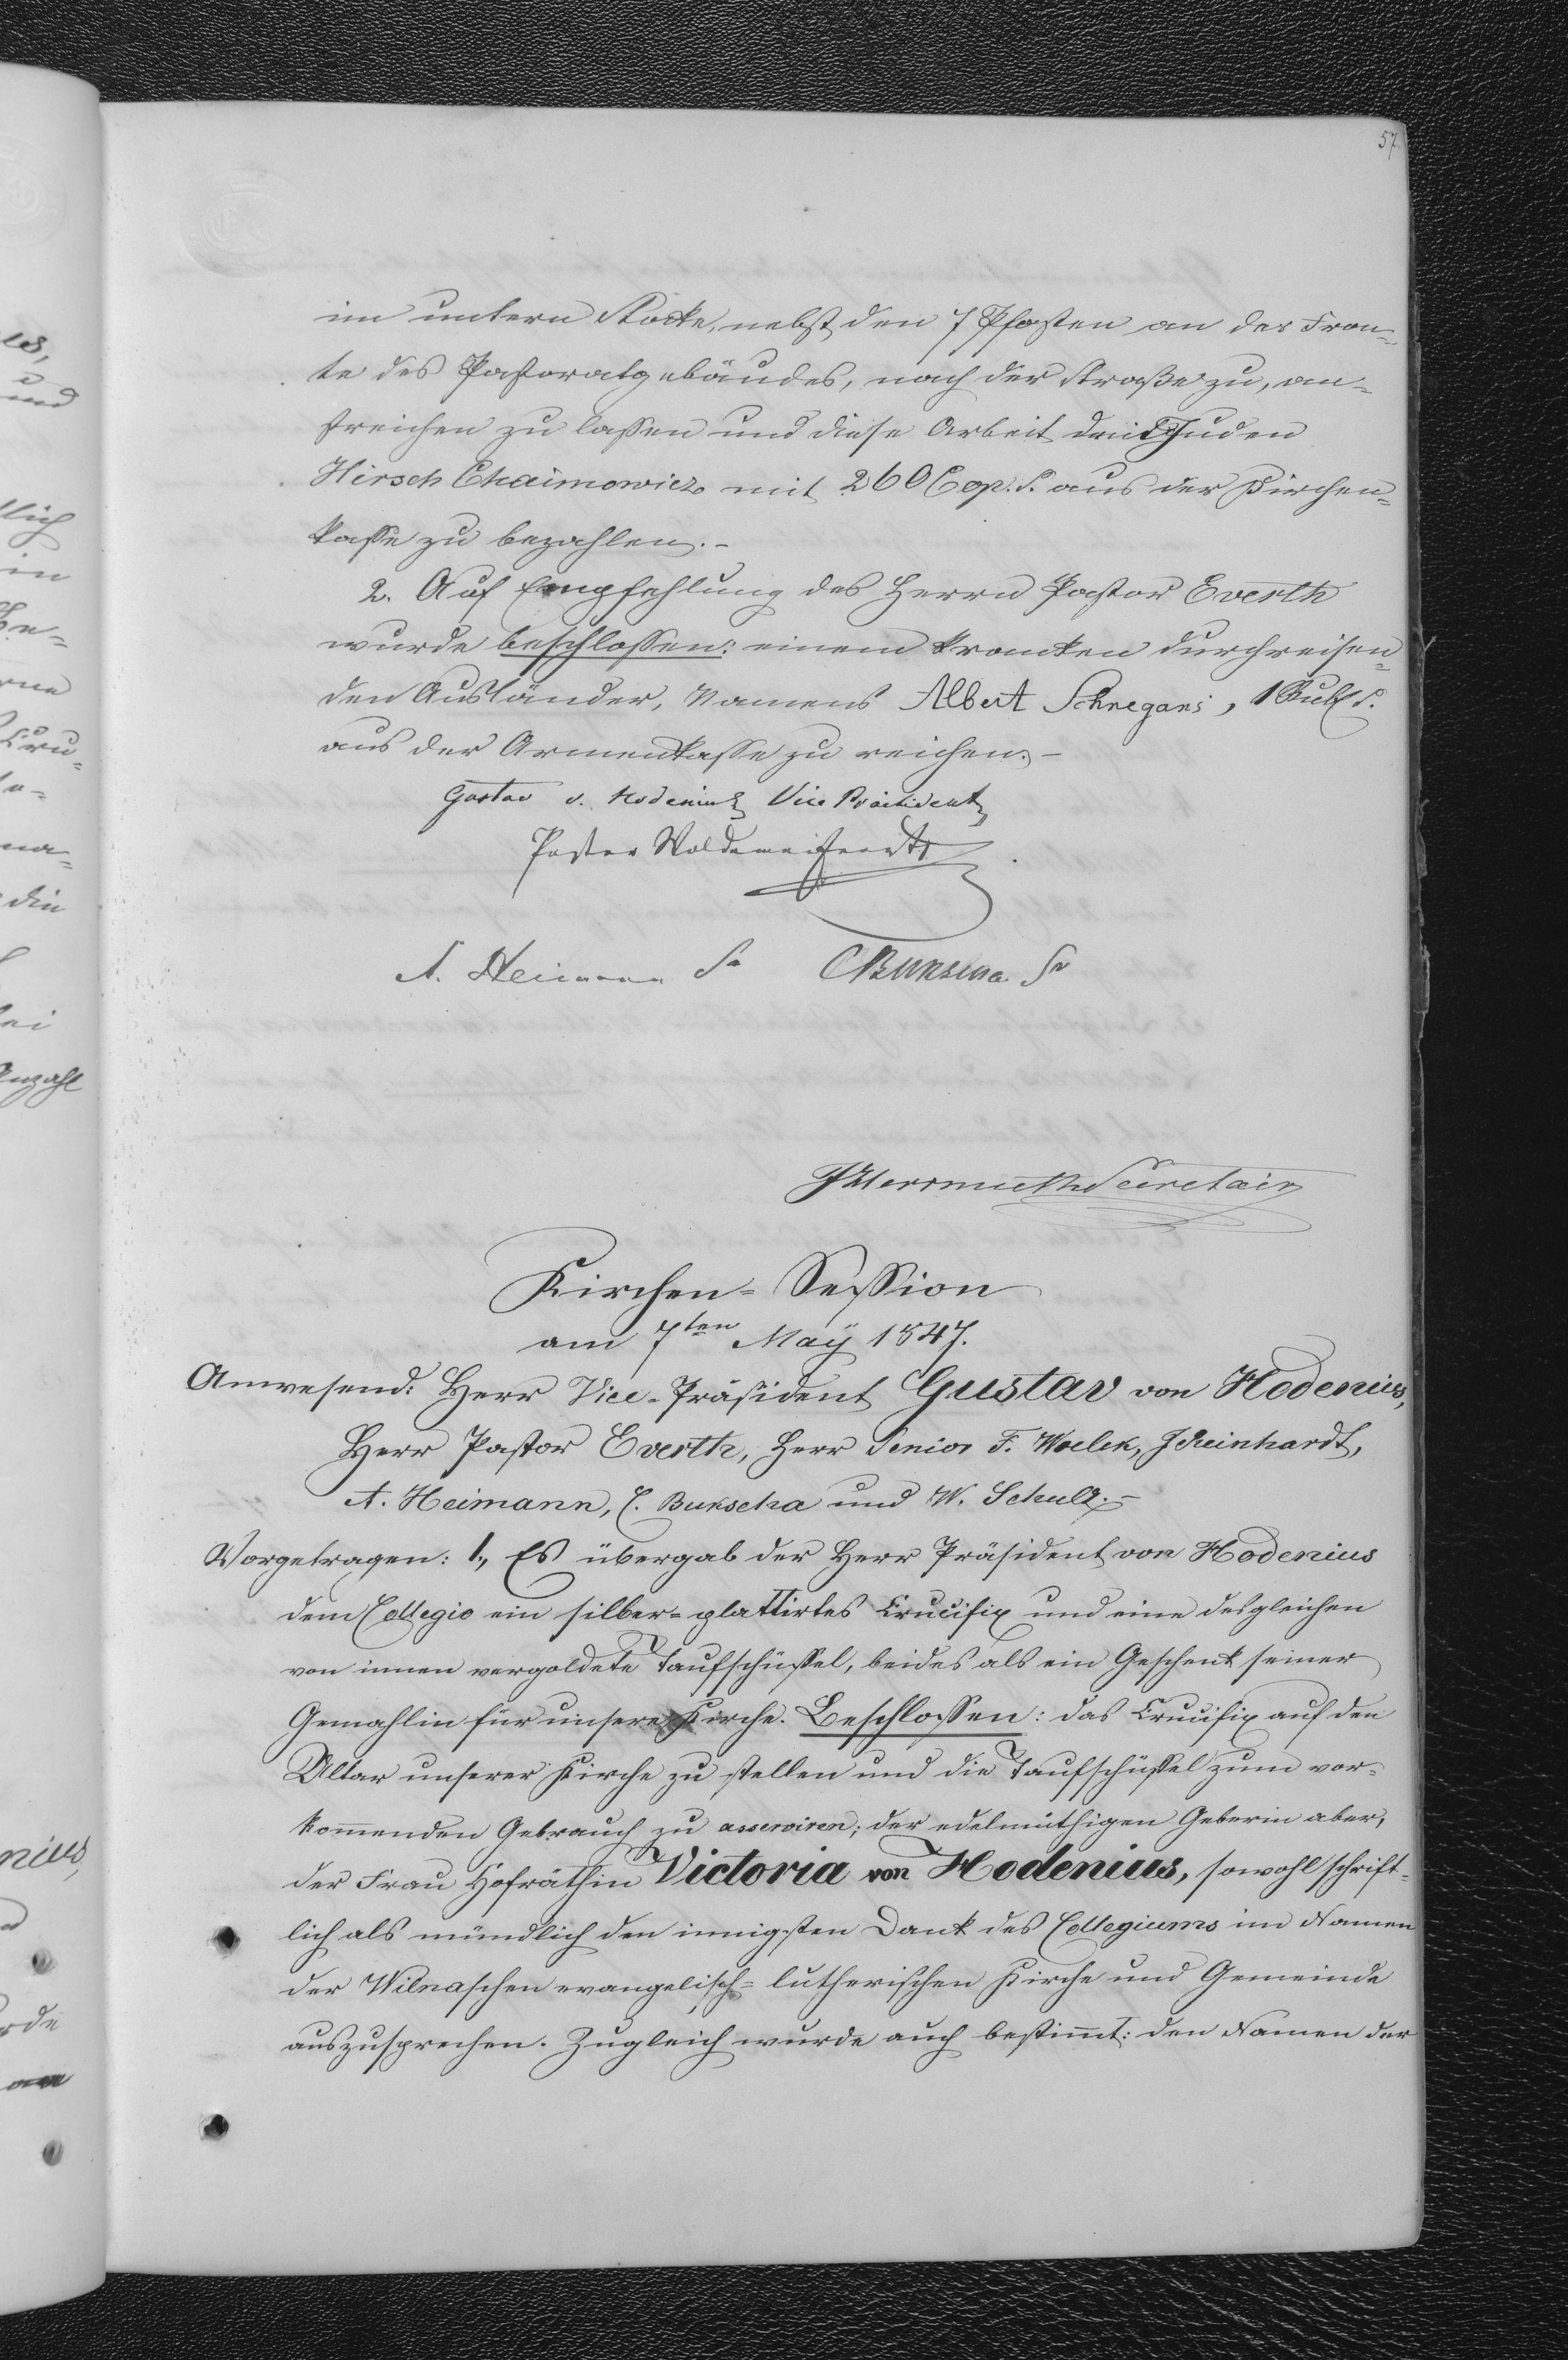 57.
im untern Stocke, nebst den 7 Pfosten an der Fron-
te des Pastoratgebäudes, nach der Straße zu, an-
streichen zu lassen und diese Arbeit dem Juden
Hirsch Chaimowicz mit 260 Cop. S. aus der Kirchen-
kasse zu bezahlen.-
2. Auf Empfehlung des Herrn Pastor Everth
wurde beschlossen: einem kranken durchreisen-
den Ausländer, Namens Albert Schregans, 1 Rub. S.
aus der Armenkasse zu reichen.-
Gustav v. Hodenius Vice Präsident
Pastor Woldemar Everth
A. Heimann Sr CBukscha Sr
Secretair
Kirchen-Session
am 7ten Maÿ 1847.
Anwesend: Herr Vice-Präsident Gustav von Hodenius,
Herr Pastor Everth, Herr Senior F. Woelck, J Reinhardt,
A. Heimann, C. Bukscha und W. Schulz.-
Vorgetragen: 1, Es übergab der Herr Präsident von Hodenius
dem Collegio ein silber-plattirtes Crucifix und eine desgleichen
von innen vergoldete Taufschüssel, beides als ein Geschenk seiner
Gemahlin für unsere Kirche. Beschlossen: das Crucifix auf den
Altar unserer Kirche zu stellen und die Taufschüssel zum vor-
kommenden Gebrauch zu asserviren; der edelmüthigen Geberin aber,
der Frau Hofräthin Victoria von Hodenius, sowohl schrift-
lich als mündlich den innigsten Dank des Collegiums im Namen
der Wilnaschen evangelisch-lutherischen Kirche und Gemeinde
auszusprechen. Zugleich wurde auch bestimmt: den Namen der